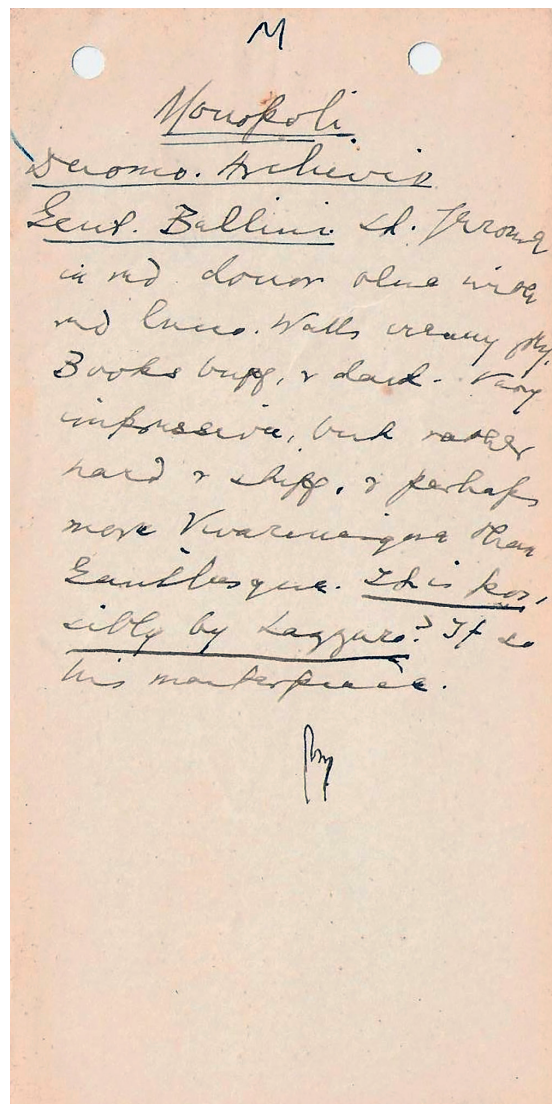 M
Monopoli
Duomo. Archivio
Gent. Bellini. St. Jerome
in red donor also with
red lines. Walls creamy gray.
Books buff, & dark. Very
impressive, but rather
hard & stiff, & perhaps
more Vivarinesque than
Gentilesque. It is pos-
sibly by Lazzaro? If so
his masterpiece.